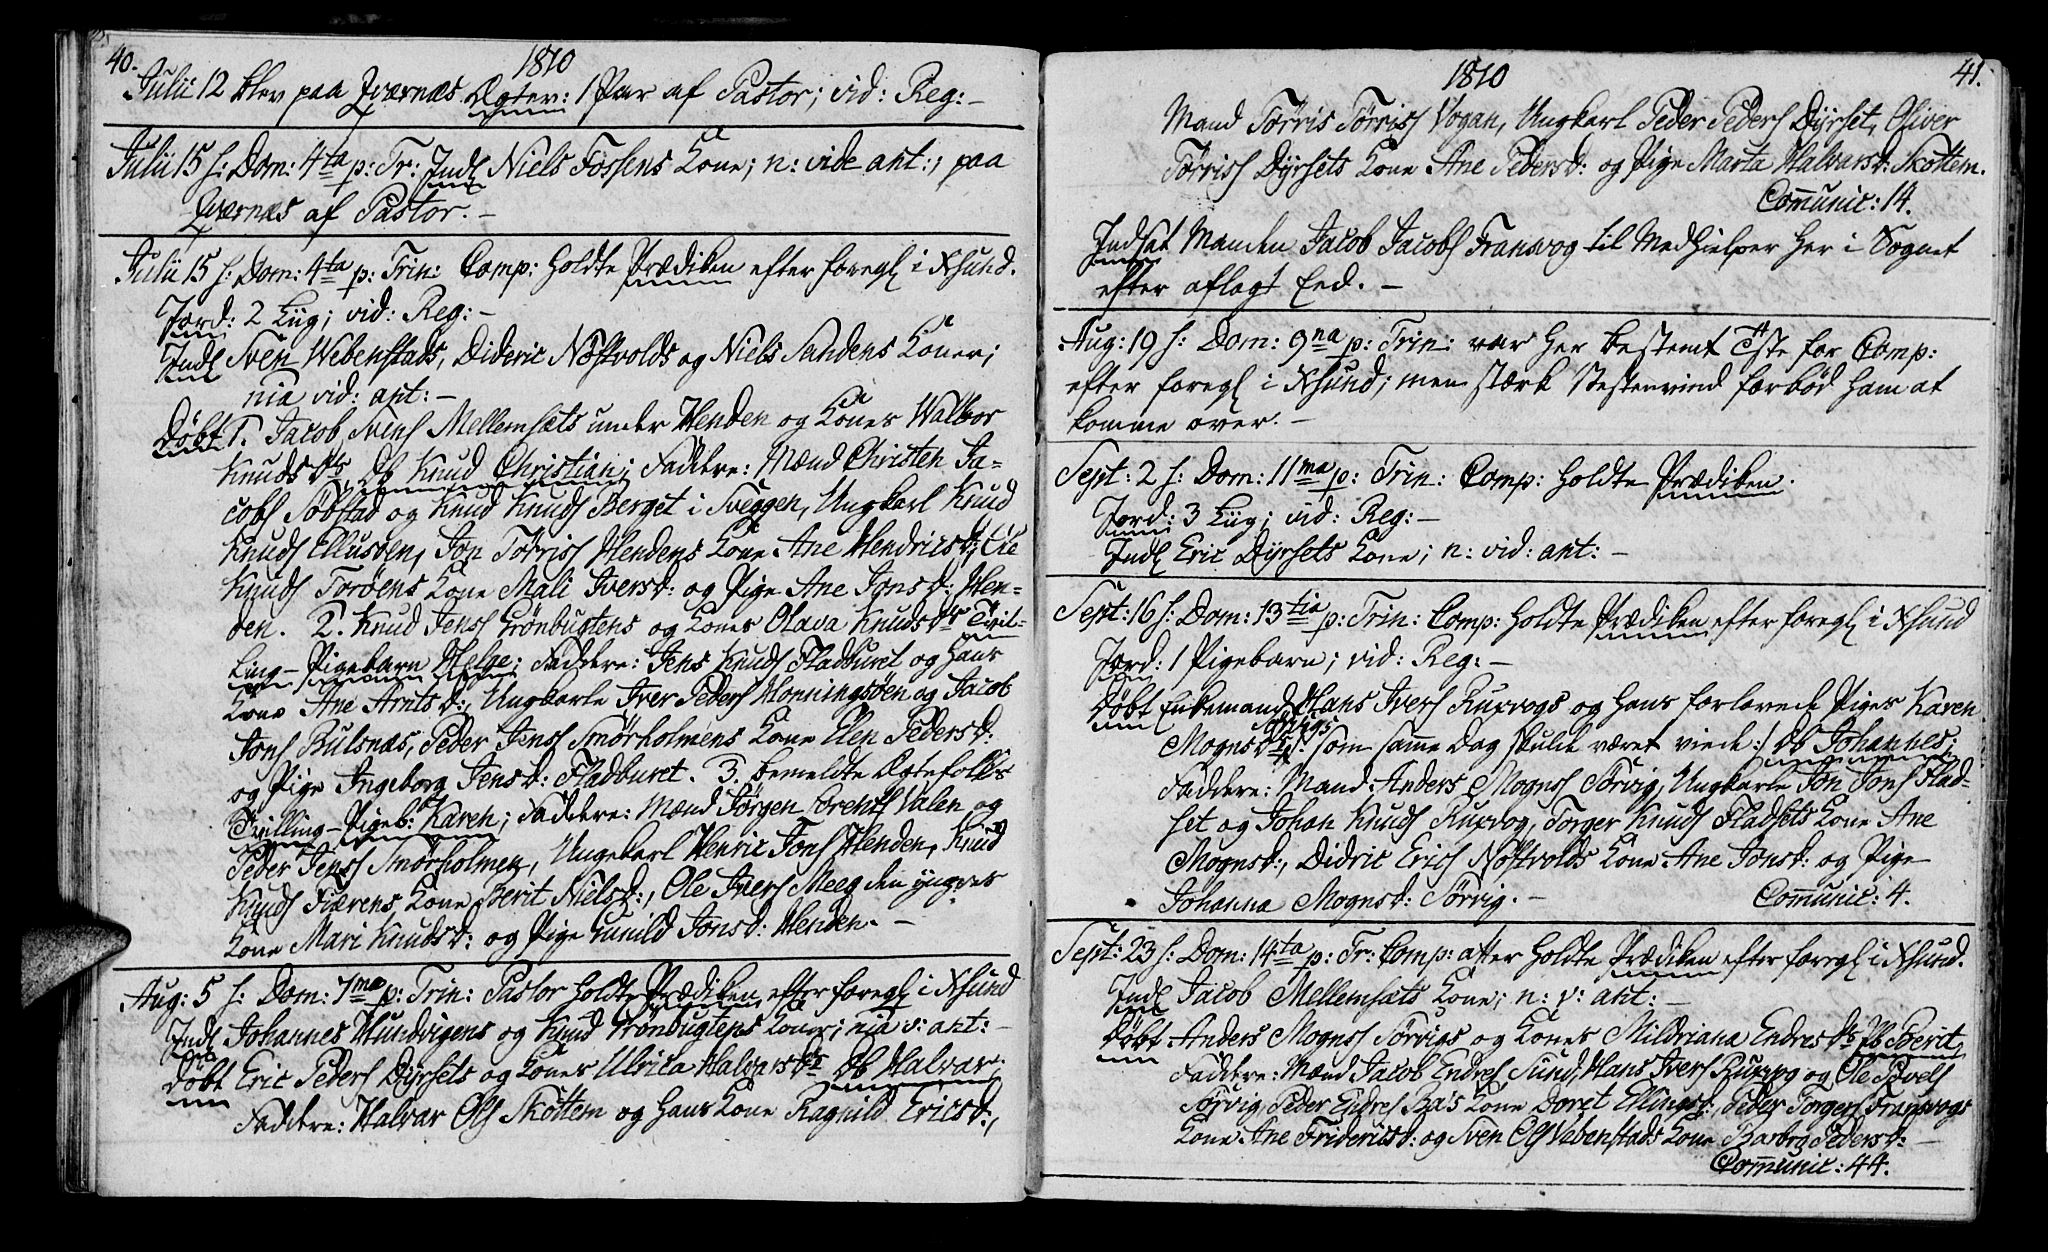 40.
1810
Julii 12 blev paa Qværnæs Ægtev: 1 Par af Pastor; vid: Reg: –
Julii 15 h: Dom: 4ta p: Tr: Indl Niels Fossens Kone; n: vide ant:; paa
Qværnæs af Pastor. –
Julii 15 h: Dom: 4ta p: Trin: Comp: holdte Prædiken efter foregl i Xsund.
Jord: 2 Liig; vid: Reg: –
Indl Sven Webenstads, Dideric Nøstvolds og Niels Sandens Koner;
nia vid: ant: –
Døbt 1. Jacob Svens Mellemsæts under Henden og Kones Walbor
Knudsdtr Db Knud Christian; Faddere: Mænd Christen Ja-
cobs Søbstad og Knud Knuds Berget i Sveggen, Ungkarl Knud
Knuds Ellussøen, Jon Tørriss Hendens Kone Ane Hendricsd:, Ole
Knuds Torøens Kone Mali Iversd: og Pige Ane Jonsd: Hen-
den. 2. Knud Jens Grønbugtens og Kones Olava Knudsdtr Tvil-
ling-Pigebarn Helge; Faddere: Jens Knuds Fladburet og hans
Kone Ane Arntsd:, Ungkarle Iver Peders Honningsøen og Jacob
Jons Bulsnæs, Peder Jens Smørholmens Kone Elen Pedersd:
og Pige Ingeborg Jensd: Fladburet. 3. bemeldte Ægtefolks
Tvilling-Pigeb: Karen; Faddere: Mænd Jørgen Lorents Valen og
Peder Jens Smørholmen, Ungekarl Henric Jons Henden, Knud
Knuds Fiærens Kone Berit Nielsd:, Ole Ivers Meeg den yngres
Kone Mari Knudsd: og Pige Gunild Jonsd: Henden. –
Aug: 5 h: Dom: 7ma p: Trin: Pastor holdte Prædiken efter foregl i Xsund
Indl Johannes Hundvigens og Knud Grønbugtens Koner; nia v: ant: –
Døbt Eric Peders Dyrsets og Kones Ulrica Halvarsdtr Db Halvar;
Faddere: Halvar Ols Skottem og hans Kone Ragnild Ericsd:,
1810
41.
Mand Tørris Tørriss Vogan, Ungkarl Peder Peders Dyrset, Oliver
Tørriss Dyrsets Kone Ane Pedersd: og Pige Marta Halvarsd: Skottem.
Communic: 14.
Indsat Manden Jacob Jacobs Fransvog til Medhielper her i Sognet
efter aflagt Eed. –
Aug: 19 h: Dom: 9na p: Trin: var her bestemt Tste for Comp:
efter foregl i Xsund; men stærk Vestenvind forbød ham at
komme over. –
Sept: 2 h: Dom: 11ma p: Trin: Comp: holdte Prædiken.
Jord: 3 Liig; vid: Reg: –
Indl Eric Dyrsets Kone; n: vid: ant: –
Sept: 16 h: Dom: 13tia p: Trin: Comp: holdte Prædiken efter foregl i Xsund
Jord: 1 Pigebarn; vid: Reg: –
Døbt Enkemand Hans Ivers Ruxvogs og hans forlovede Piges Karen
Mognsdtr Sørvigs /: som samme Dag skulde været viede :/ Db Johannes;
Faddere: Mand Anders Mogns Sørvig, Ungkarle Jon Jons Flad-
set og Johan Knuds Ruxvog, Torger Knuds Fladsets Kone Ane
Mognsd:, Didric Erics Nøstvolds Kone Ane Jonsd: og Pige
Johanna Mognsd: Sørvig. –
Communic: 4.
Sept: 23 h: Dom: 14ta p: Tr: Comp: atter holdte Prædiken efter foregl i Xsund.
Indl Jacob Mellemsæts Kone; n: v: ant: –
Døbt Anders Mogns Sørvigs og Kones Mildriana Endresdtr Pb Berit,
Faddere: Mænd Jacob Endres Sund, Hans Ivers Ruxvog og Ole Povels
Sørvig, Peder Endres Bø's Kone Doret Ellingsd:, Peder Torgers Fransvogs
Kone Ane Fridericsd: og Sven Ols Vebenstads Kone Barbro Pedersd: –
Communic: 44.